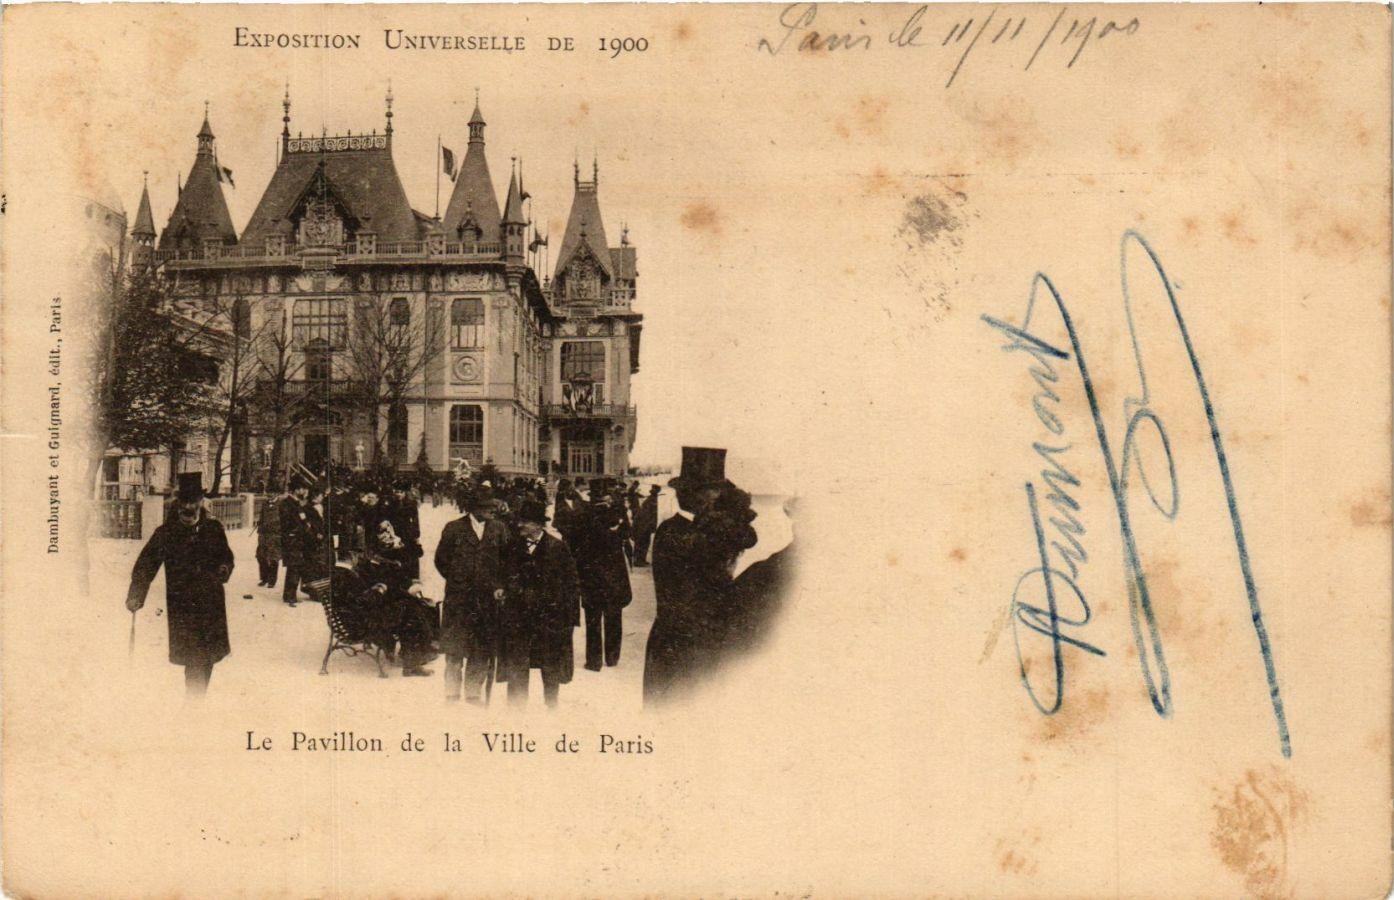 EXPOSITION UNIVERSELLE DE 1900
Paris le 11/11/1900
Dambuyant et Guignard, édit., Paris
Dumont
Le Pavillon de la Ville de Paris